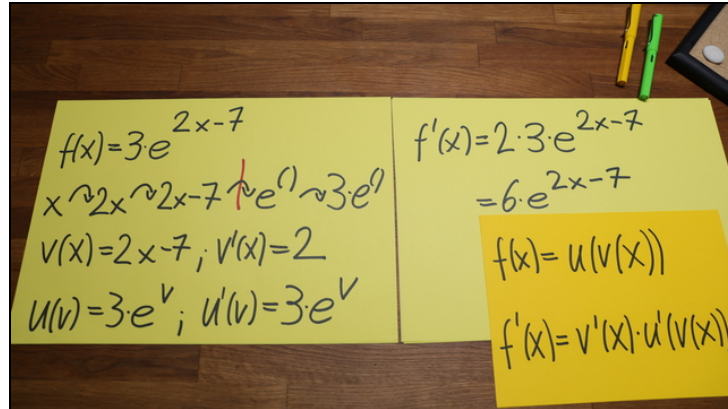 f(x)=3·e^{2x-7}
x ↝ 2x ↝ 2x-7 ↝ e^{()} ↝ 3·e^{()}
v(x)=2x-7; v'(x)=2
u(v)=3·e^v; u'(v)=3·e^v
f'(x)=2·3·e^{2x-7}
=6·e^{2x-7}
f(x)=u(v(x))
f'(x)=v'(x)·u'(v(x))